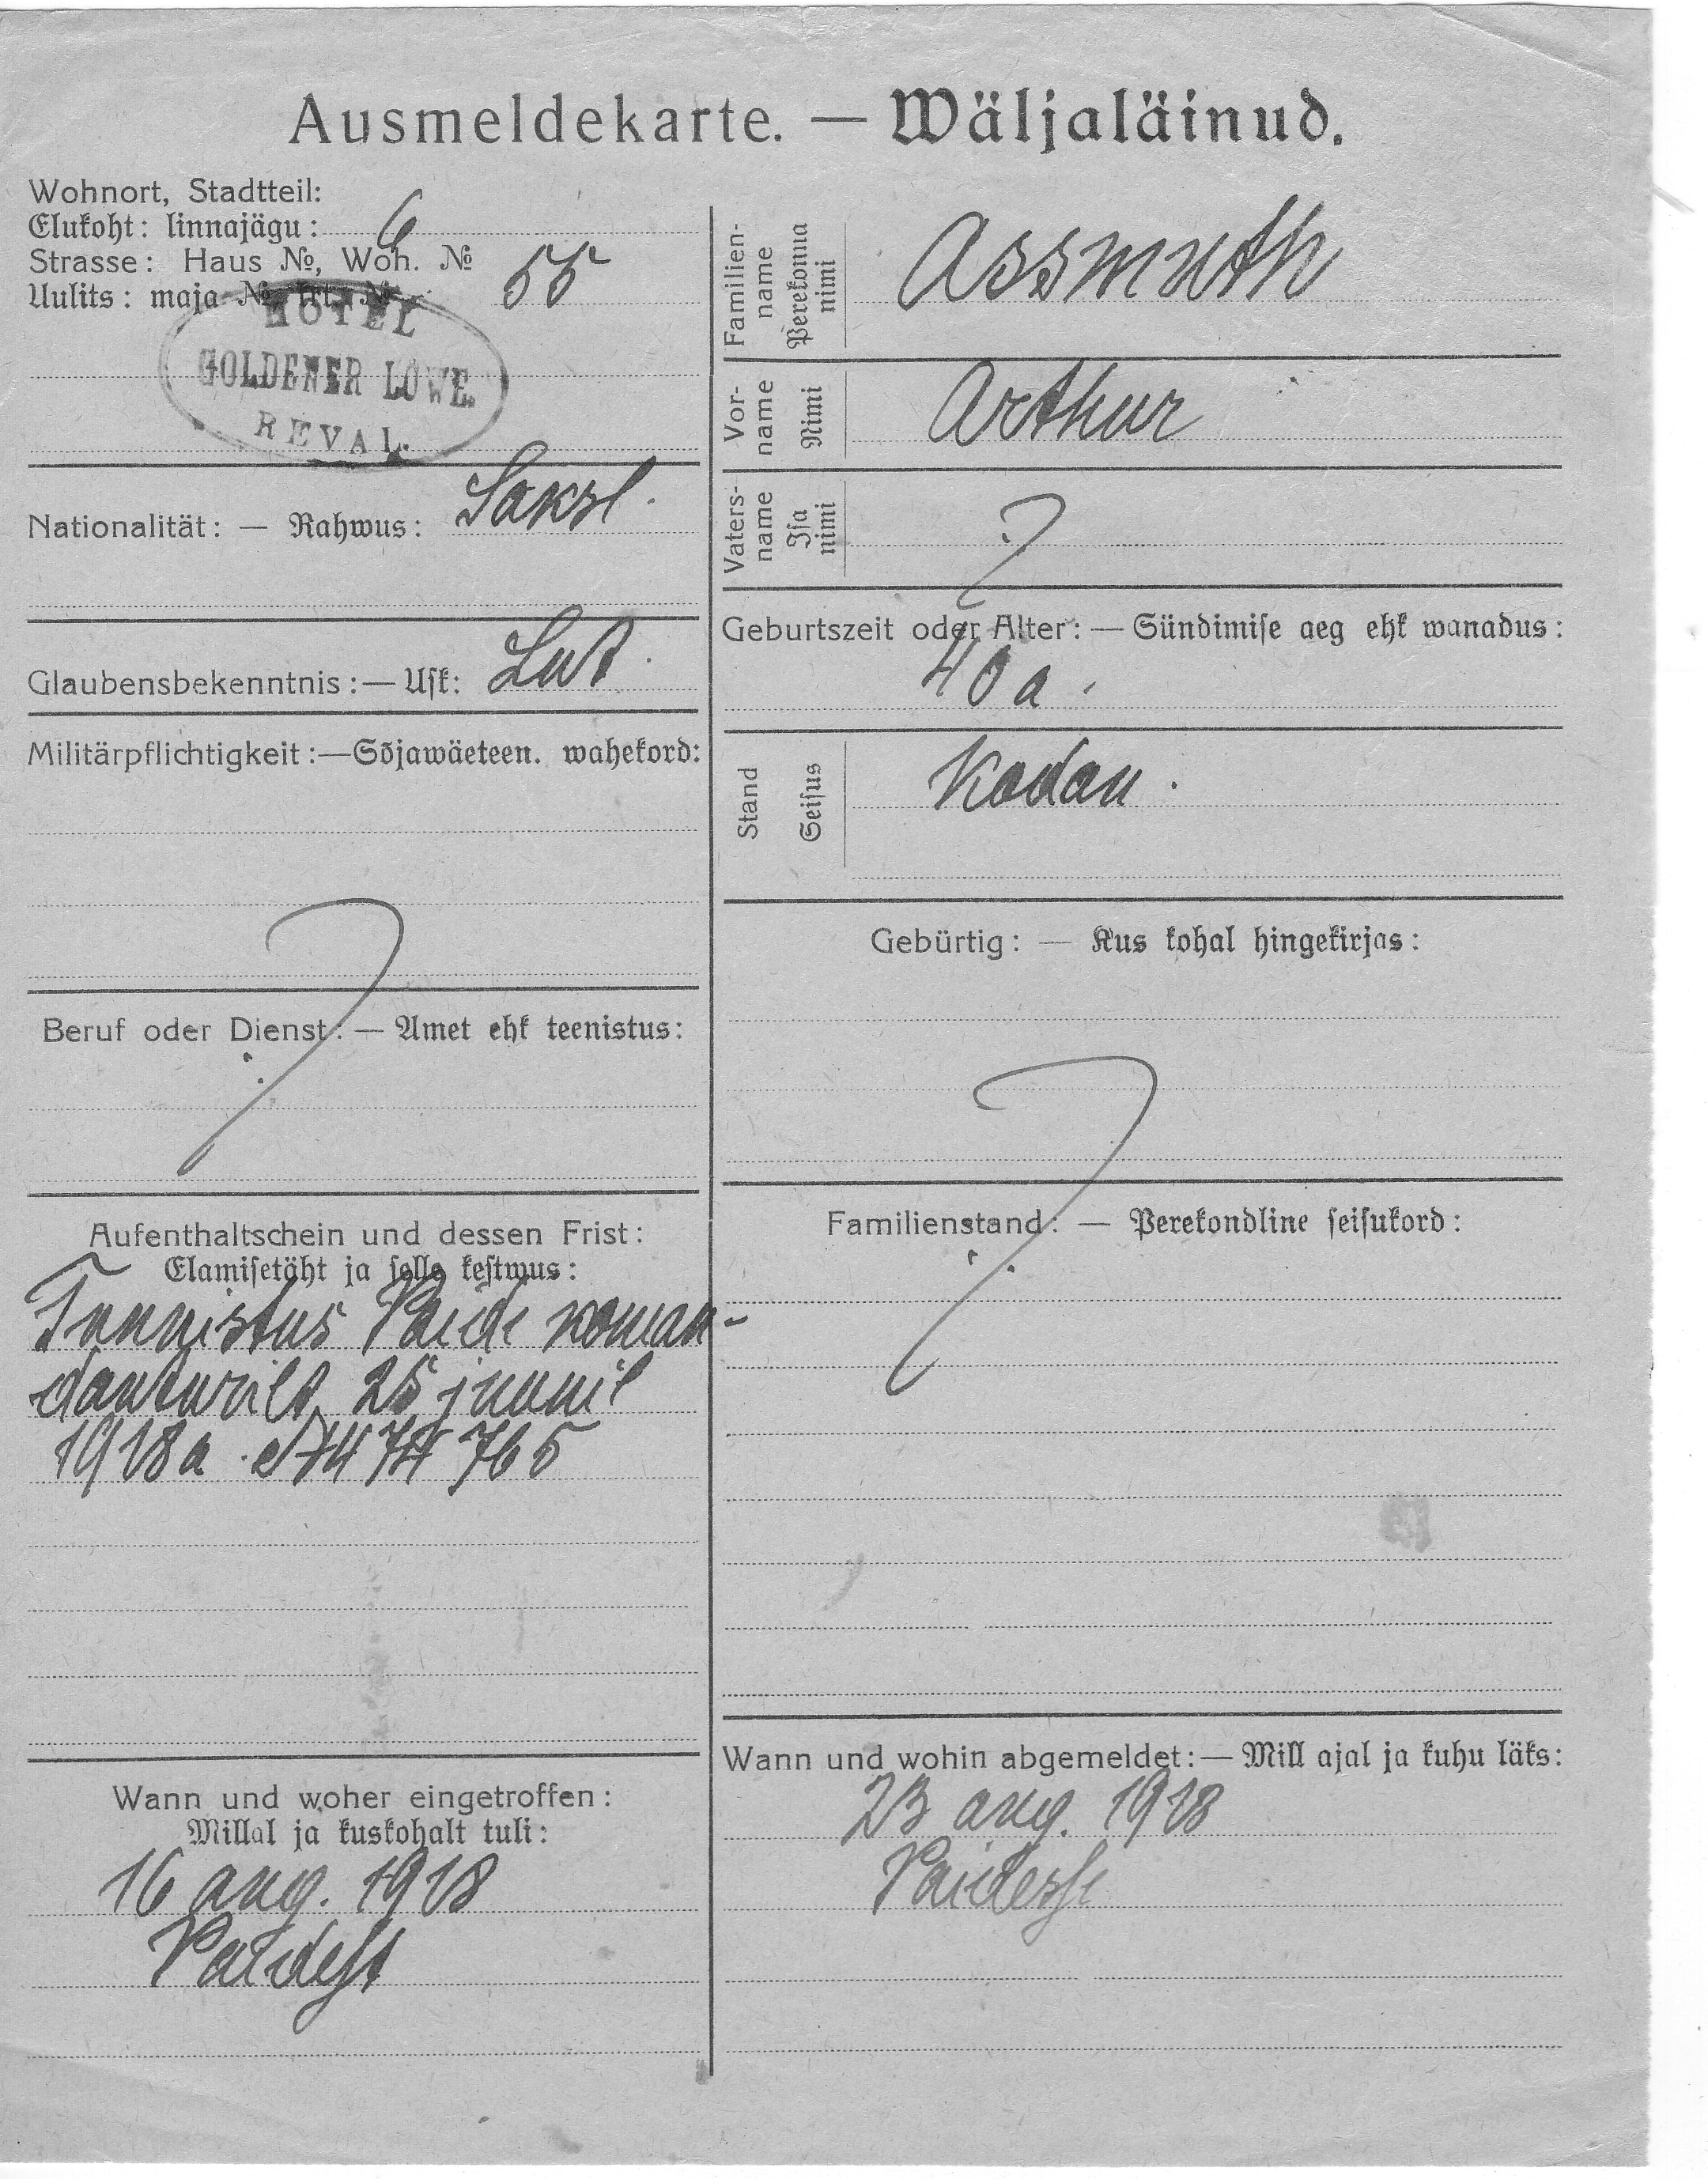 Ausmeldekarte. — Wäljaläinud.
Wohnort, Stadtteil:
Elukoht: linnajägu: 6
Strasse: Haus №, Woh. №
Uulits: maja № krt. № 55
HOTEL
GOLDENER LÖWE.
REVAL.
Nationalität: — Rahwus: Saksl.
Glaubensbekenntnis: — Usk: Lut.
Militärpflichtigkeit: — Sõjawäeteen. wahekord:
?
Beruf oder Dienst: — Amet ehk teenistus:
Aufenthaltschein und dessen Frist:
Elamisetäht ja selle kestwus:
Tunnistus Paide koman-
danturilt 25 juunil
1918 a. № 474 765
Wann und woher eingetroffen:
Millal ja kuskohalt tuli:
16 aug. 1918
Paidest
Familien-
name
Perekonna
nimi
Assmuth
Vor-
name
Nimi
Arthur
Vaters-
name
Isa
nimi
?
Geburtszeit oder Alter: — Sündimise aeg ehk wanadus:
40 a.
Stand
Seisus
Kodan.
Gebürtig: — Kus kohal hingekirjas:
?
Familienstand: — Perekondline seisukord:
Wann und wohin abgemeldet: — Mill ajal ja kuhu läks:
23 aug. 1918
Paidesse